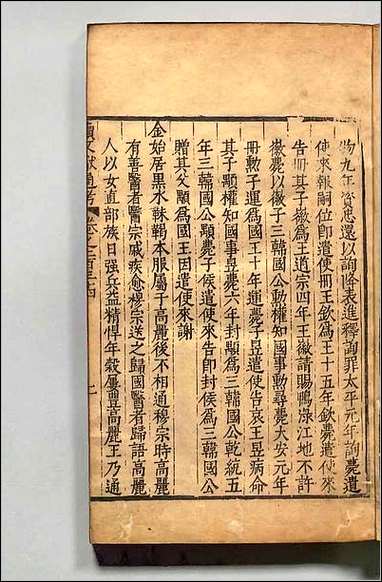 物九年資忠還以詢降表進釋詢罪太平元年詢薨遣
使來報嗣位即遣使冊王欽為王十五年欽薨遣使來
告冊其子徽為王道宗四年王徽請賜鴨淥江地不許
徽薨以徽子三韓國公勳權知國事勳尋薨大安元年
冊勳子運為國王十年運薨子昱遣使告哀王昱病命
其子顒權知國事昱薨六年封顒為三韓國公乾統五
年三韓國公顒薨子俁遣使來告即封俁為三韓國公
贈其父顒為國王因遣使來謝
金始居黑水靺鞨本服屬于高麗後不相通穆宗時高麗
有善醫者醫宗戚疾愈穆宗送之歸國醫者歸語高麗
人以女直部族日强兵益精悍年穀屢豐高麗王乃通
續文獻通考 卷之二百三十四